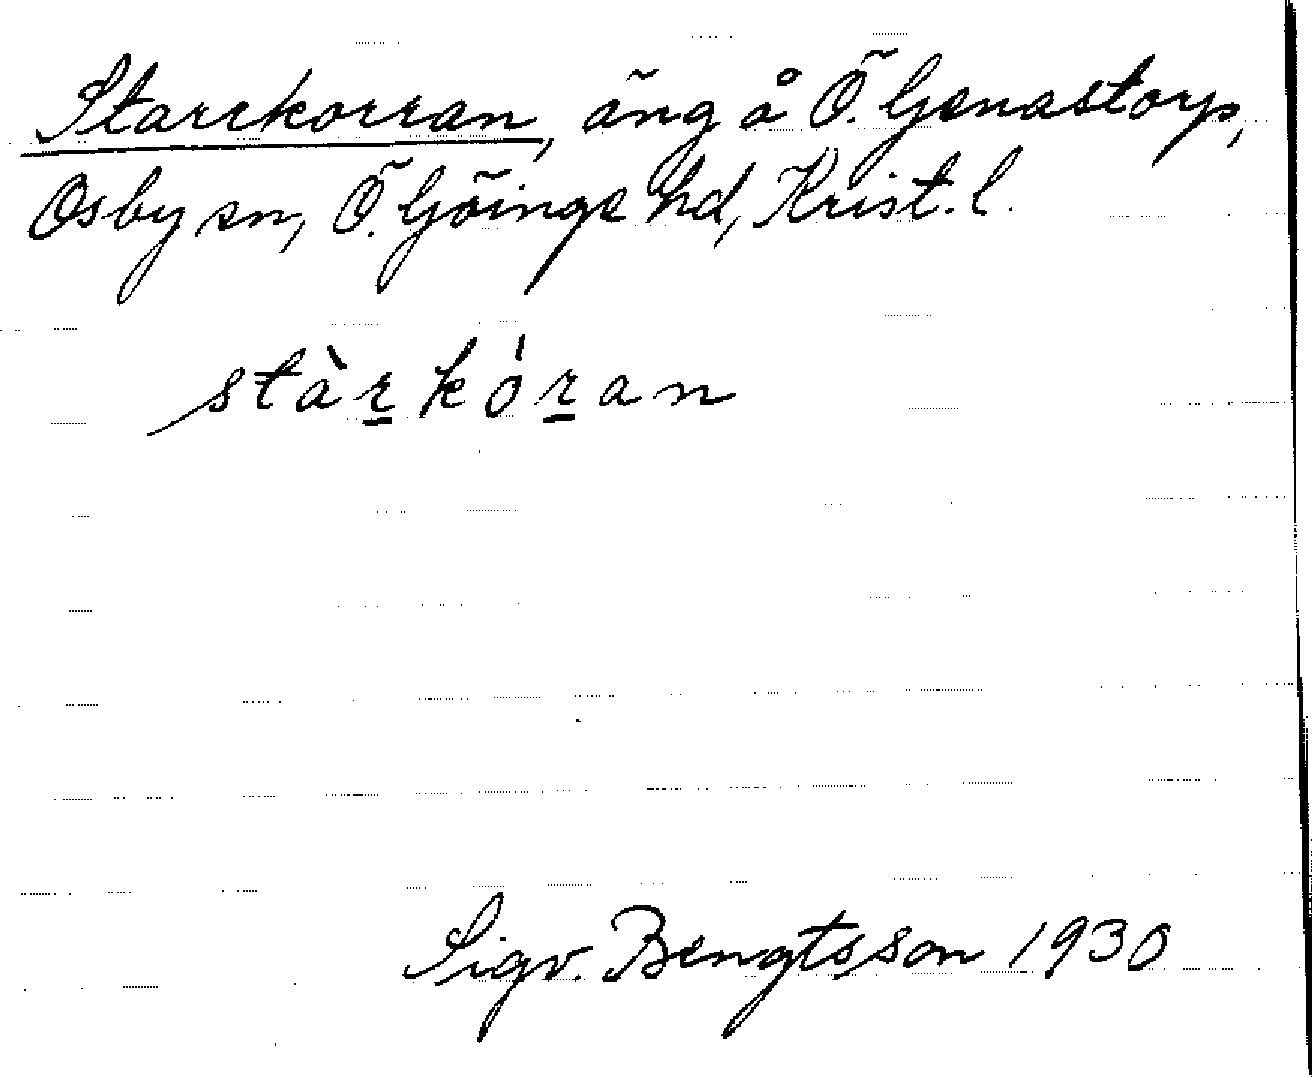 Starrkorran, äng å Ö. Genastorp,
Osby sn, Ö. Göinge hd, Krist. l.
stàr̲kór̲an
Sigv. Bengtsson 1930